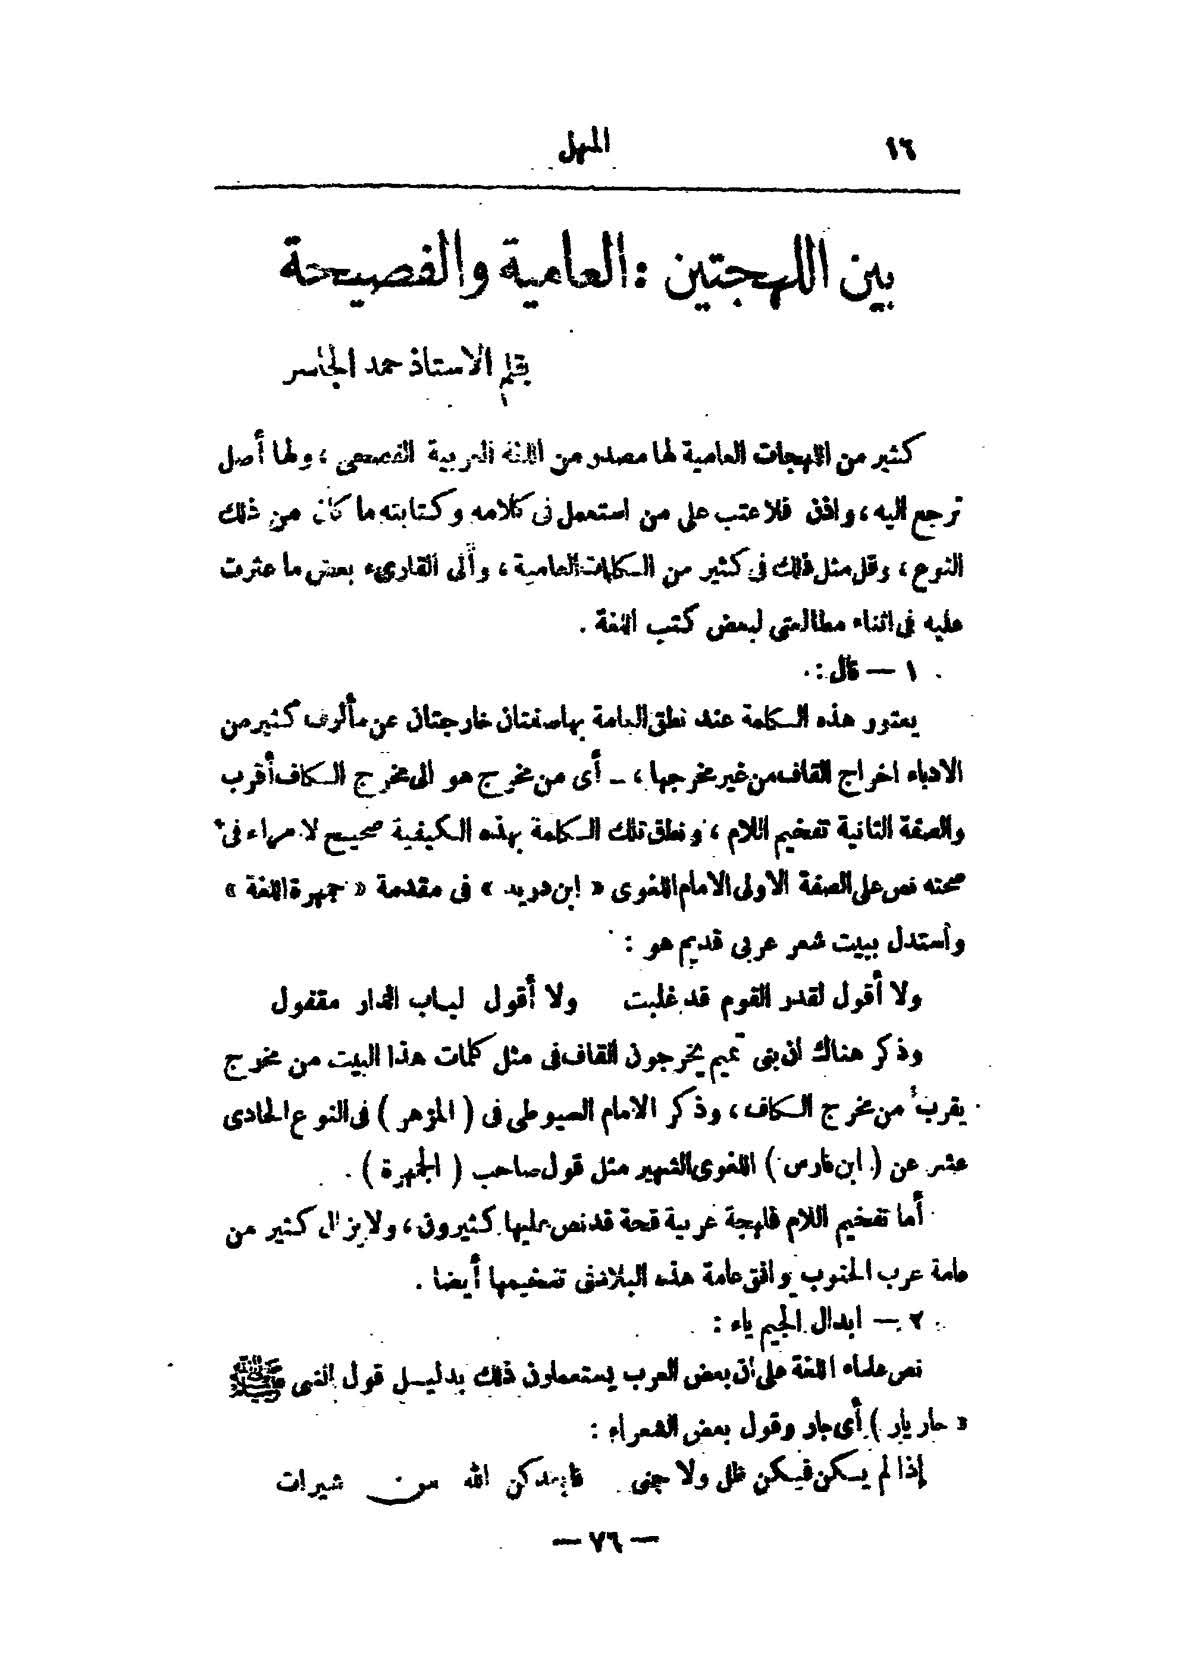 ١٦
المنهل
بين اللهجتين : العامية والفصيحة
بقلم الاستاذ حمد الجاسر
كثير من اللهجات العامية لها مصدر من اللغة العربية الفصحى ، ولها أصل
ترجع اليه ، واذن فلا عتب على من استعمل فى كلامه وكتابته ما كان من ذلك
النوع ، وقل مثل ذلك فى كثير من الكلمات العامية ، وألى القارىء بعض ما عثرت
عليه فى اثناء مطالعتى لبعض كتب اللغة .
١ — قال :
يعتور هذه الكلمة عند نطق العامة بها صفتان خارجتان عن مألوف كثير من
الادباء اخراج القاف من غير مخرجها ، — أى من مخرج هو الى مخرج الكاف أقرب
والصفة الثانية تفخيم اللام ، ونطق تلك الكلمة بهذه الكيفية صحيح لا مراء فى
صحته نص على الصفة الاولى الامام اللغوى « ابن دريد » فى مقدمة « جمهرة اللغة »
وأستدل ببيت شعر عربى قديم هو :
ولا أقول لقدر القوم قد غلبت ولا أقول لباب الدار مقفول
وذكر هناك ان بنى تميم يخرجون القاف فى مثل كلمات هذا البيت من مخرج
يقرب من مخرج الكاف ، وذكر الامام الصيوطى فى ( المزهر ) فى النوع الحادى
عشر عن ( ابن فارس ) اللغوى الشهير مثل قول صاحب ( الجمهرة ) .
أما تفخيم اللام فلهجة عربية قحة قد نص عليها كثيرون ، ولا يزال كثير من
عامة عرب الجنوب يوافق عامة هذه البلاد فى تفخيمها أيضا .
٢ — ابدال الجيم ياء :
نص علماء اللغة على ان بعض العرب يستعملون ذلك بدليل قول النبى ﷺ
« حار يار ) أى جار وقول بعض الشعراء :
إذا لم يكن فيكن ظل ولا جنى فابعدكن الله من شيرات
— ٧٦ —